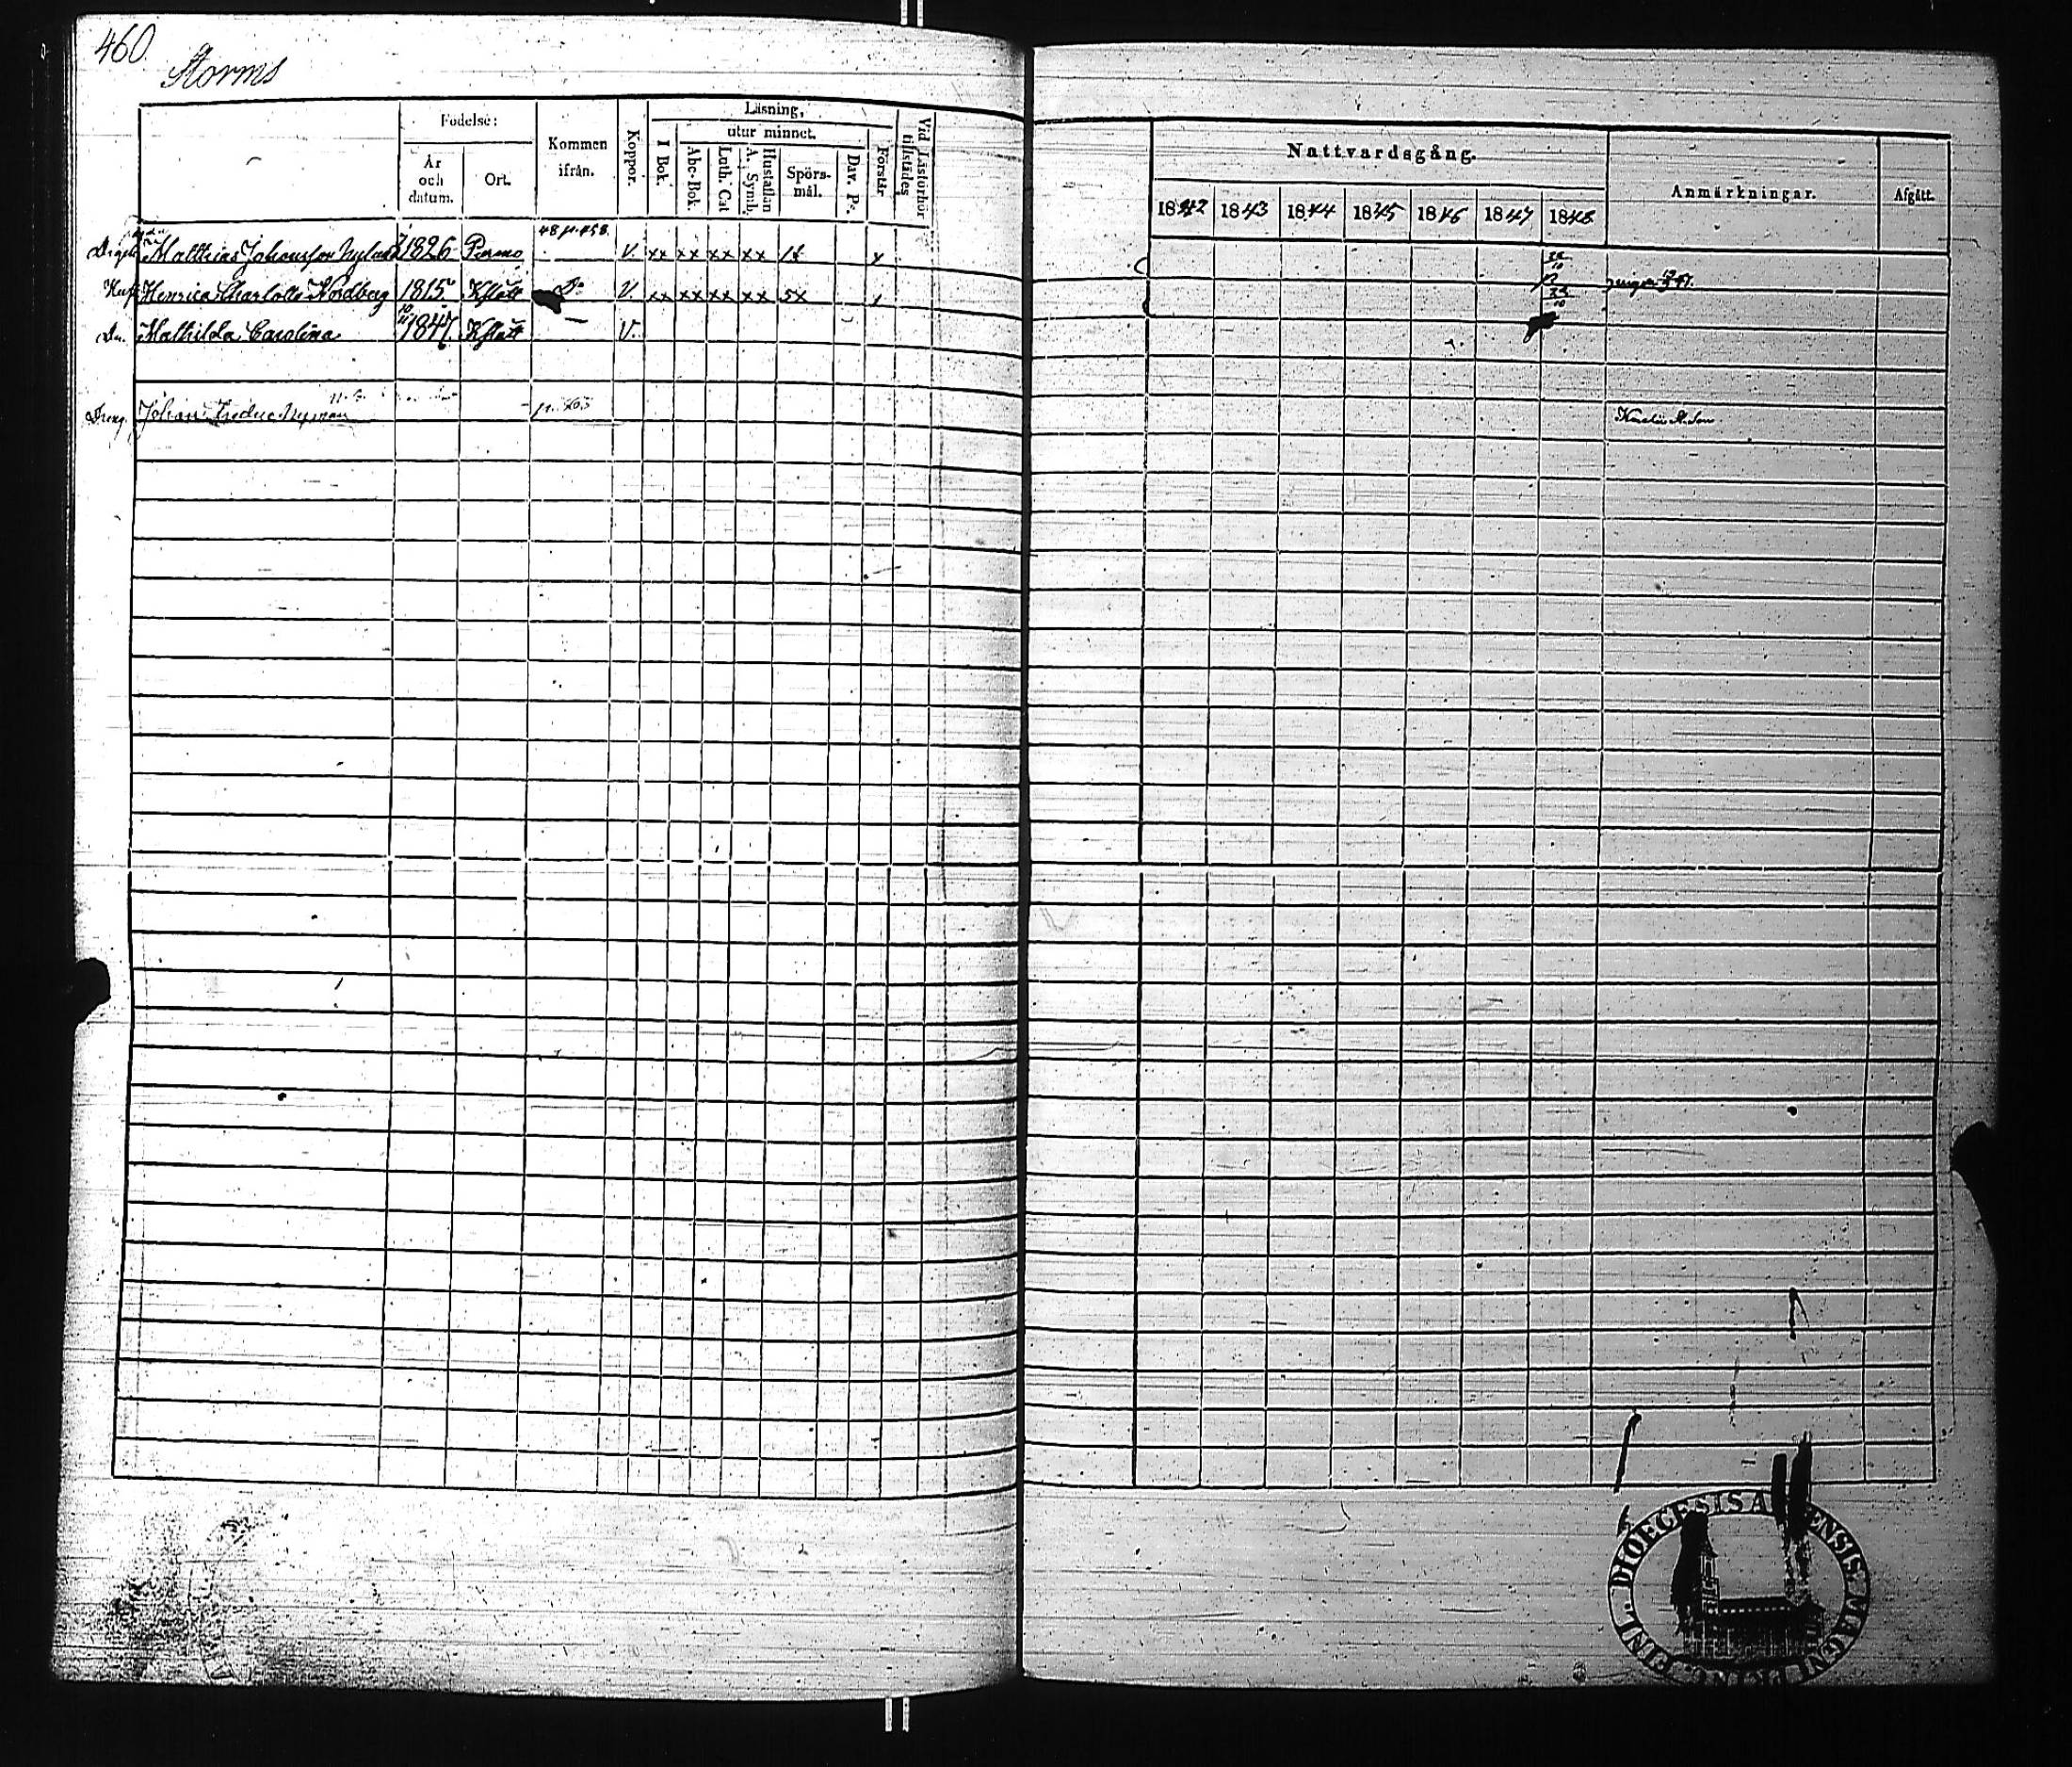 460.
Storms
Födelse:
År och datum.
Ort.
Kommen ifrån.
Koppor.
Läsning,
I Bok.
utur minnet.
Abc-Bok.
Luth. Cat
Hustaflan A. Symb.
Spörsmål.
Dav. Ps.
Förstår.
Vid Läsförhör tillstädes
Nattvardsgång.
1842 1843 1844 1845 1846 1847 1848
Anmärkningar.
Afgått.
48 p. 458.
Matthias Johansson 1826 Pernå V. xx xx xx xx x
Hust. Henrica Charlotta Nordberg 1815 Do V. xx xx xx xx 5x x
Mathilda Carolina 1847. V.
Dreng. Johan Fredric Nyman
DIOECESIS ABOENSIS MAGNI DUC. FINL.